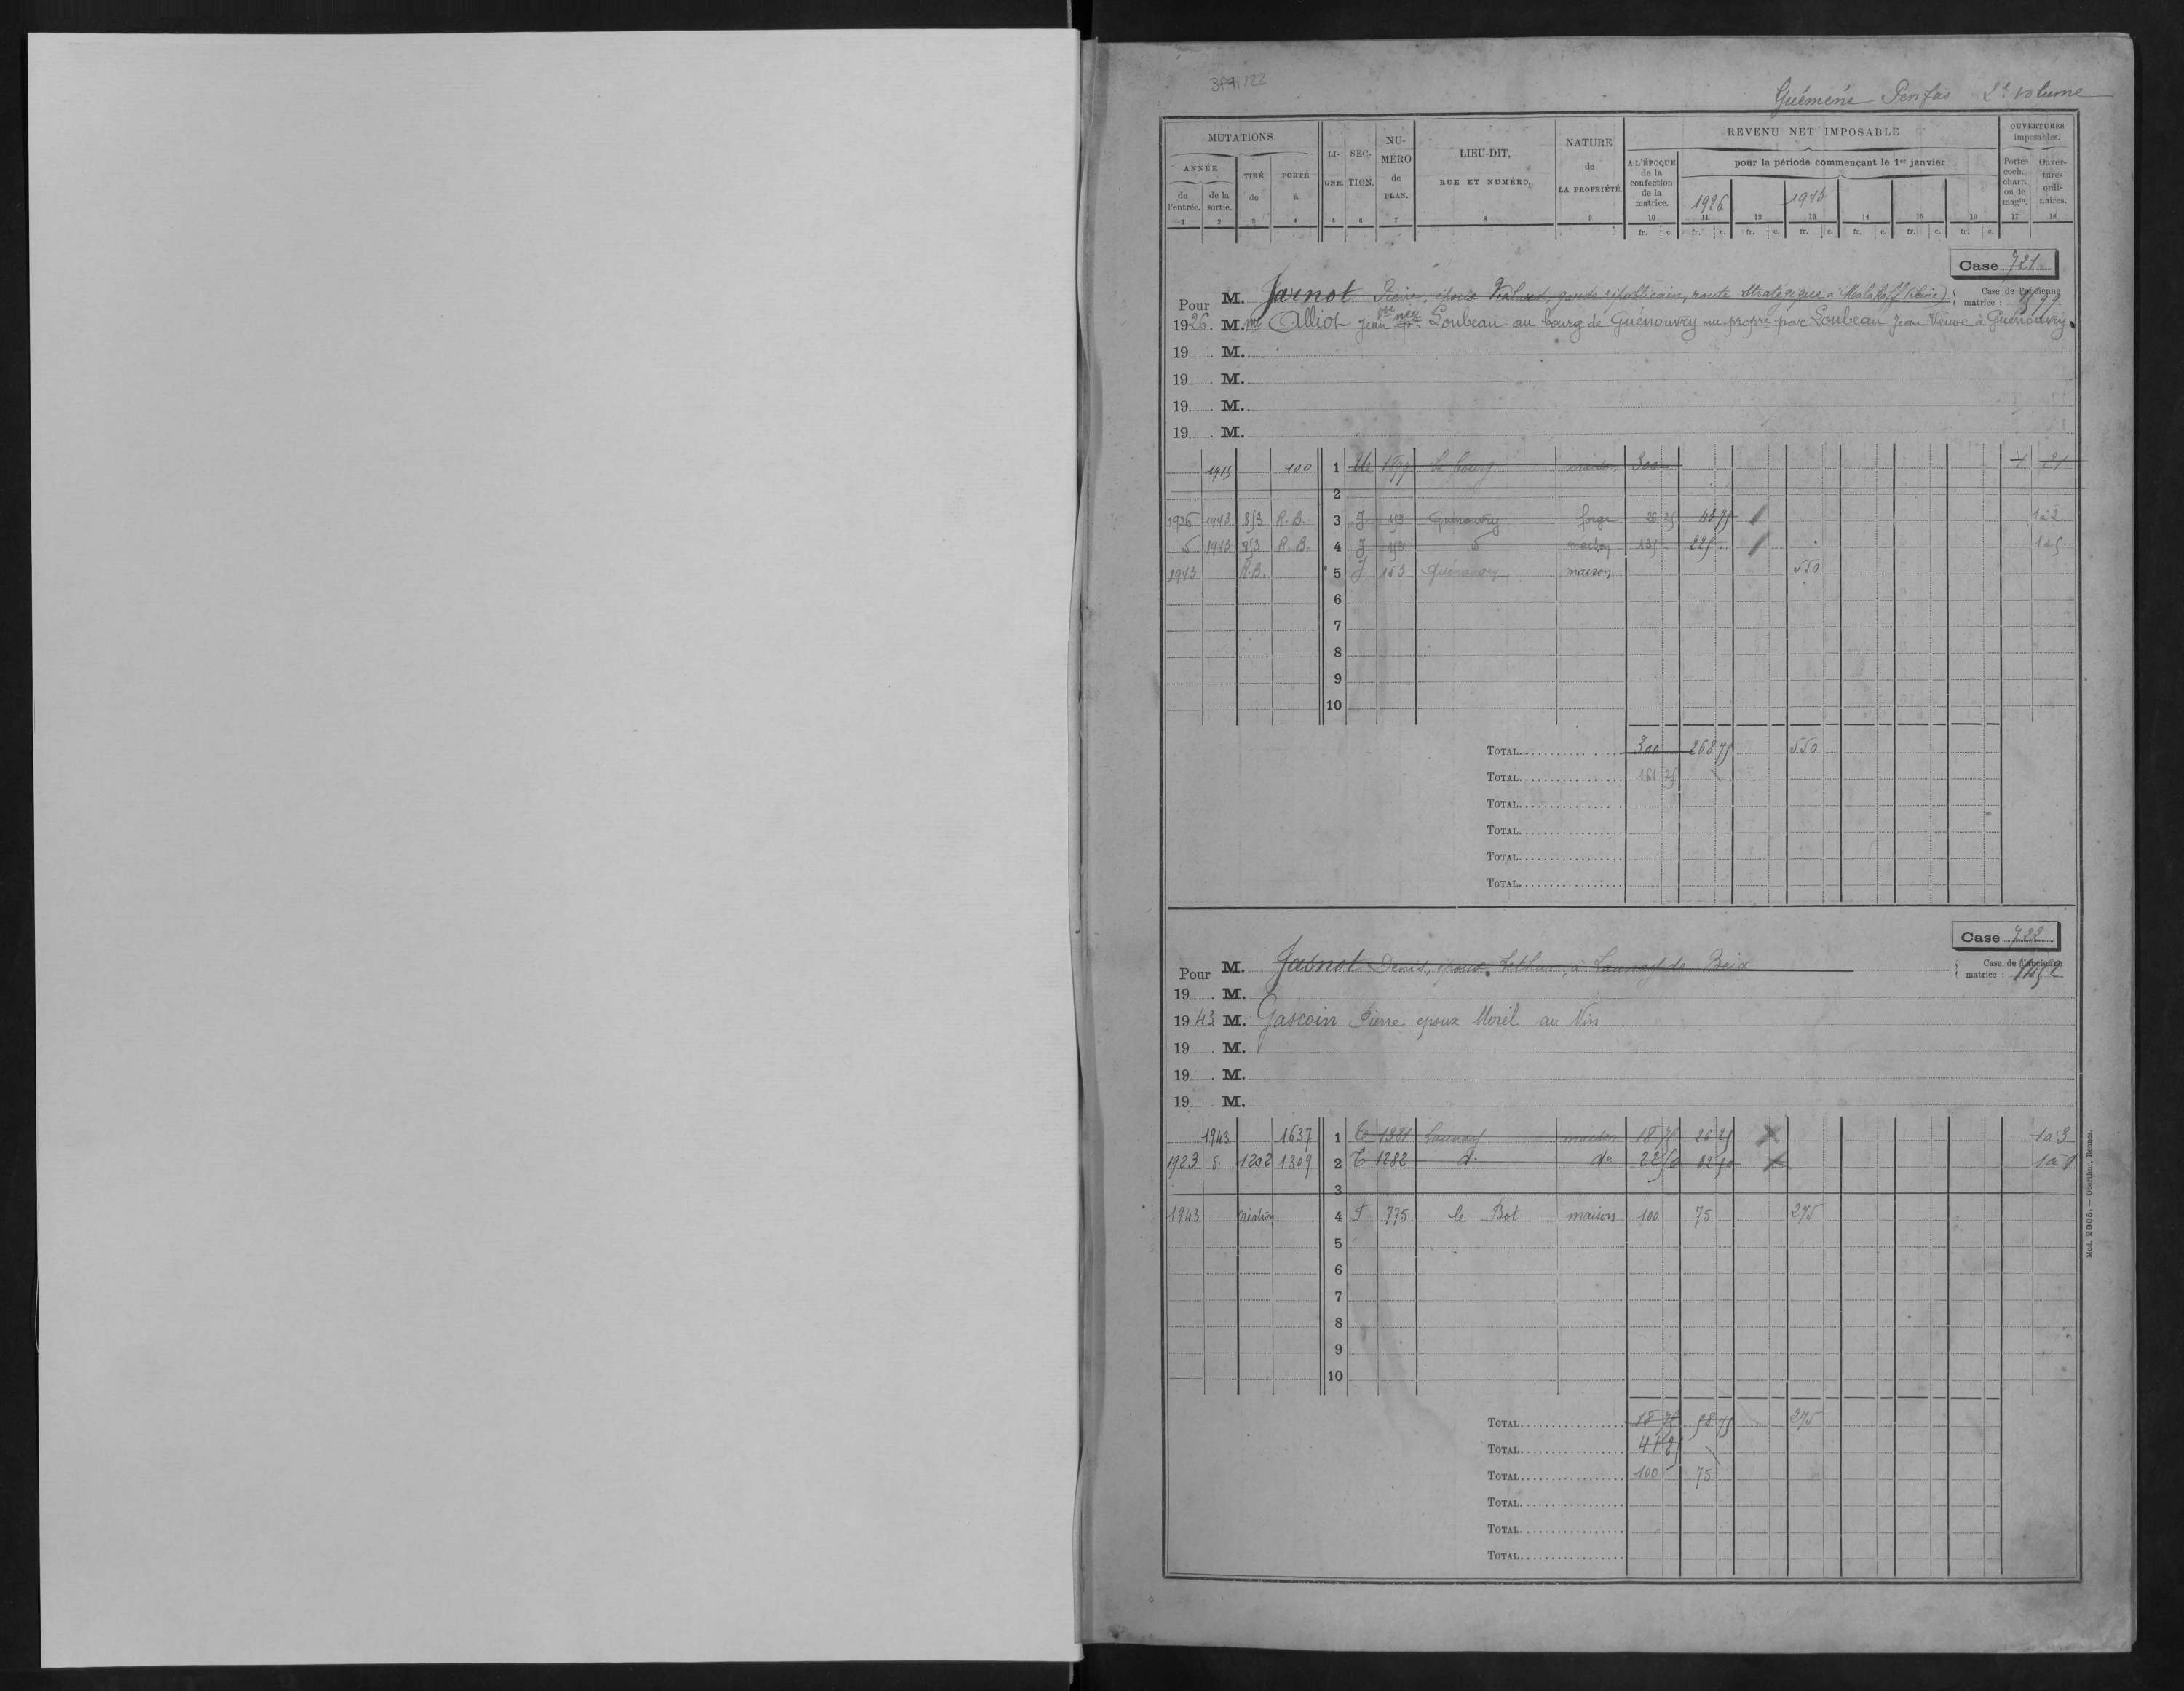 Guémené Penfao 2e volume
MUTATIONS.
ANNÉE
de l'entrée.
de la sortie.
TIRÉ de
PORTÉ à
LI-GNE.
SEC-TION.
NU-MÉRO de PLAN.
LIEU-DIT, RUE ET NUMÉRO.
NATURE de LA PROPRIÉTÉ.
REVENU NET IMPOSABLE
A L'ÉPOQUE de la confection de la matrice.
pour la période commençant le 1er janvier
1926 1943
OUVERTURES imposables.
Portes coch., charr. ou de magin.
Ouver-tures ordi-naires.
1 2 3 4 5 6 7 8 9 10 11 12 13 14 15 16 17 18
fr. c. fr. c. fr. c. fr. c. fr. c. fr. c. fr. c.
Case 721
Pour M. Jarnot époux garde républicain, route Stratégique à Malakoff (Seine)
Case de l'ancienne matrice :
1926. M. Alliot Jean vve née Loubeau au bourg de Guénouvry nu-propre par Loubeau Jean Veuve à Guénouvry
19 . M.
19 . M.
19 . M.
19 . M.
1915 100 1 1899 Le bourg maison 300 21
2
1926 1943 853 R.B. 3 J 153 Guénouvry forge 26 25 43 75 1à2
1943 853 R.B. 4 J 153 maison 135 225 1à5
1943 R.B. 5 J 153 Guénouvry maison 550
6
7
8
9
10
TOTAL 300 268 75 550
TOTAL 161 25
TOTAL
TOTAL
TOTAL
TOTAL
Case 722
Pour M. Jasnot Denis, époux à Launay de Beix
Case de l'ancienne matrice :
19 . M.
1943. M. Gascoin Pierre époux Morel au Nin
19 . M.
19 . M.
19 . M.
1943 1637 1 1381 Launay maison 18 75 26 25 1à3
1923 1202 1309 2 1282 do do 22 50 32 50
3
1943 création 4 775 le Bot maison 100 75 275
5
6
7
8
9
10
TOTAL 18 75 58 75 275
TOTAL 41 25
TOTAL 100 75
TOTAL
TOTAL
TOTAL
Mod. 2005. — Oberthur, Rennes.